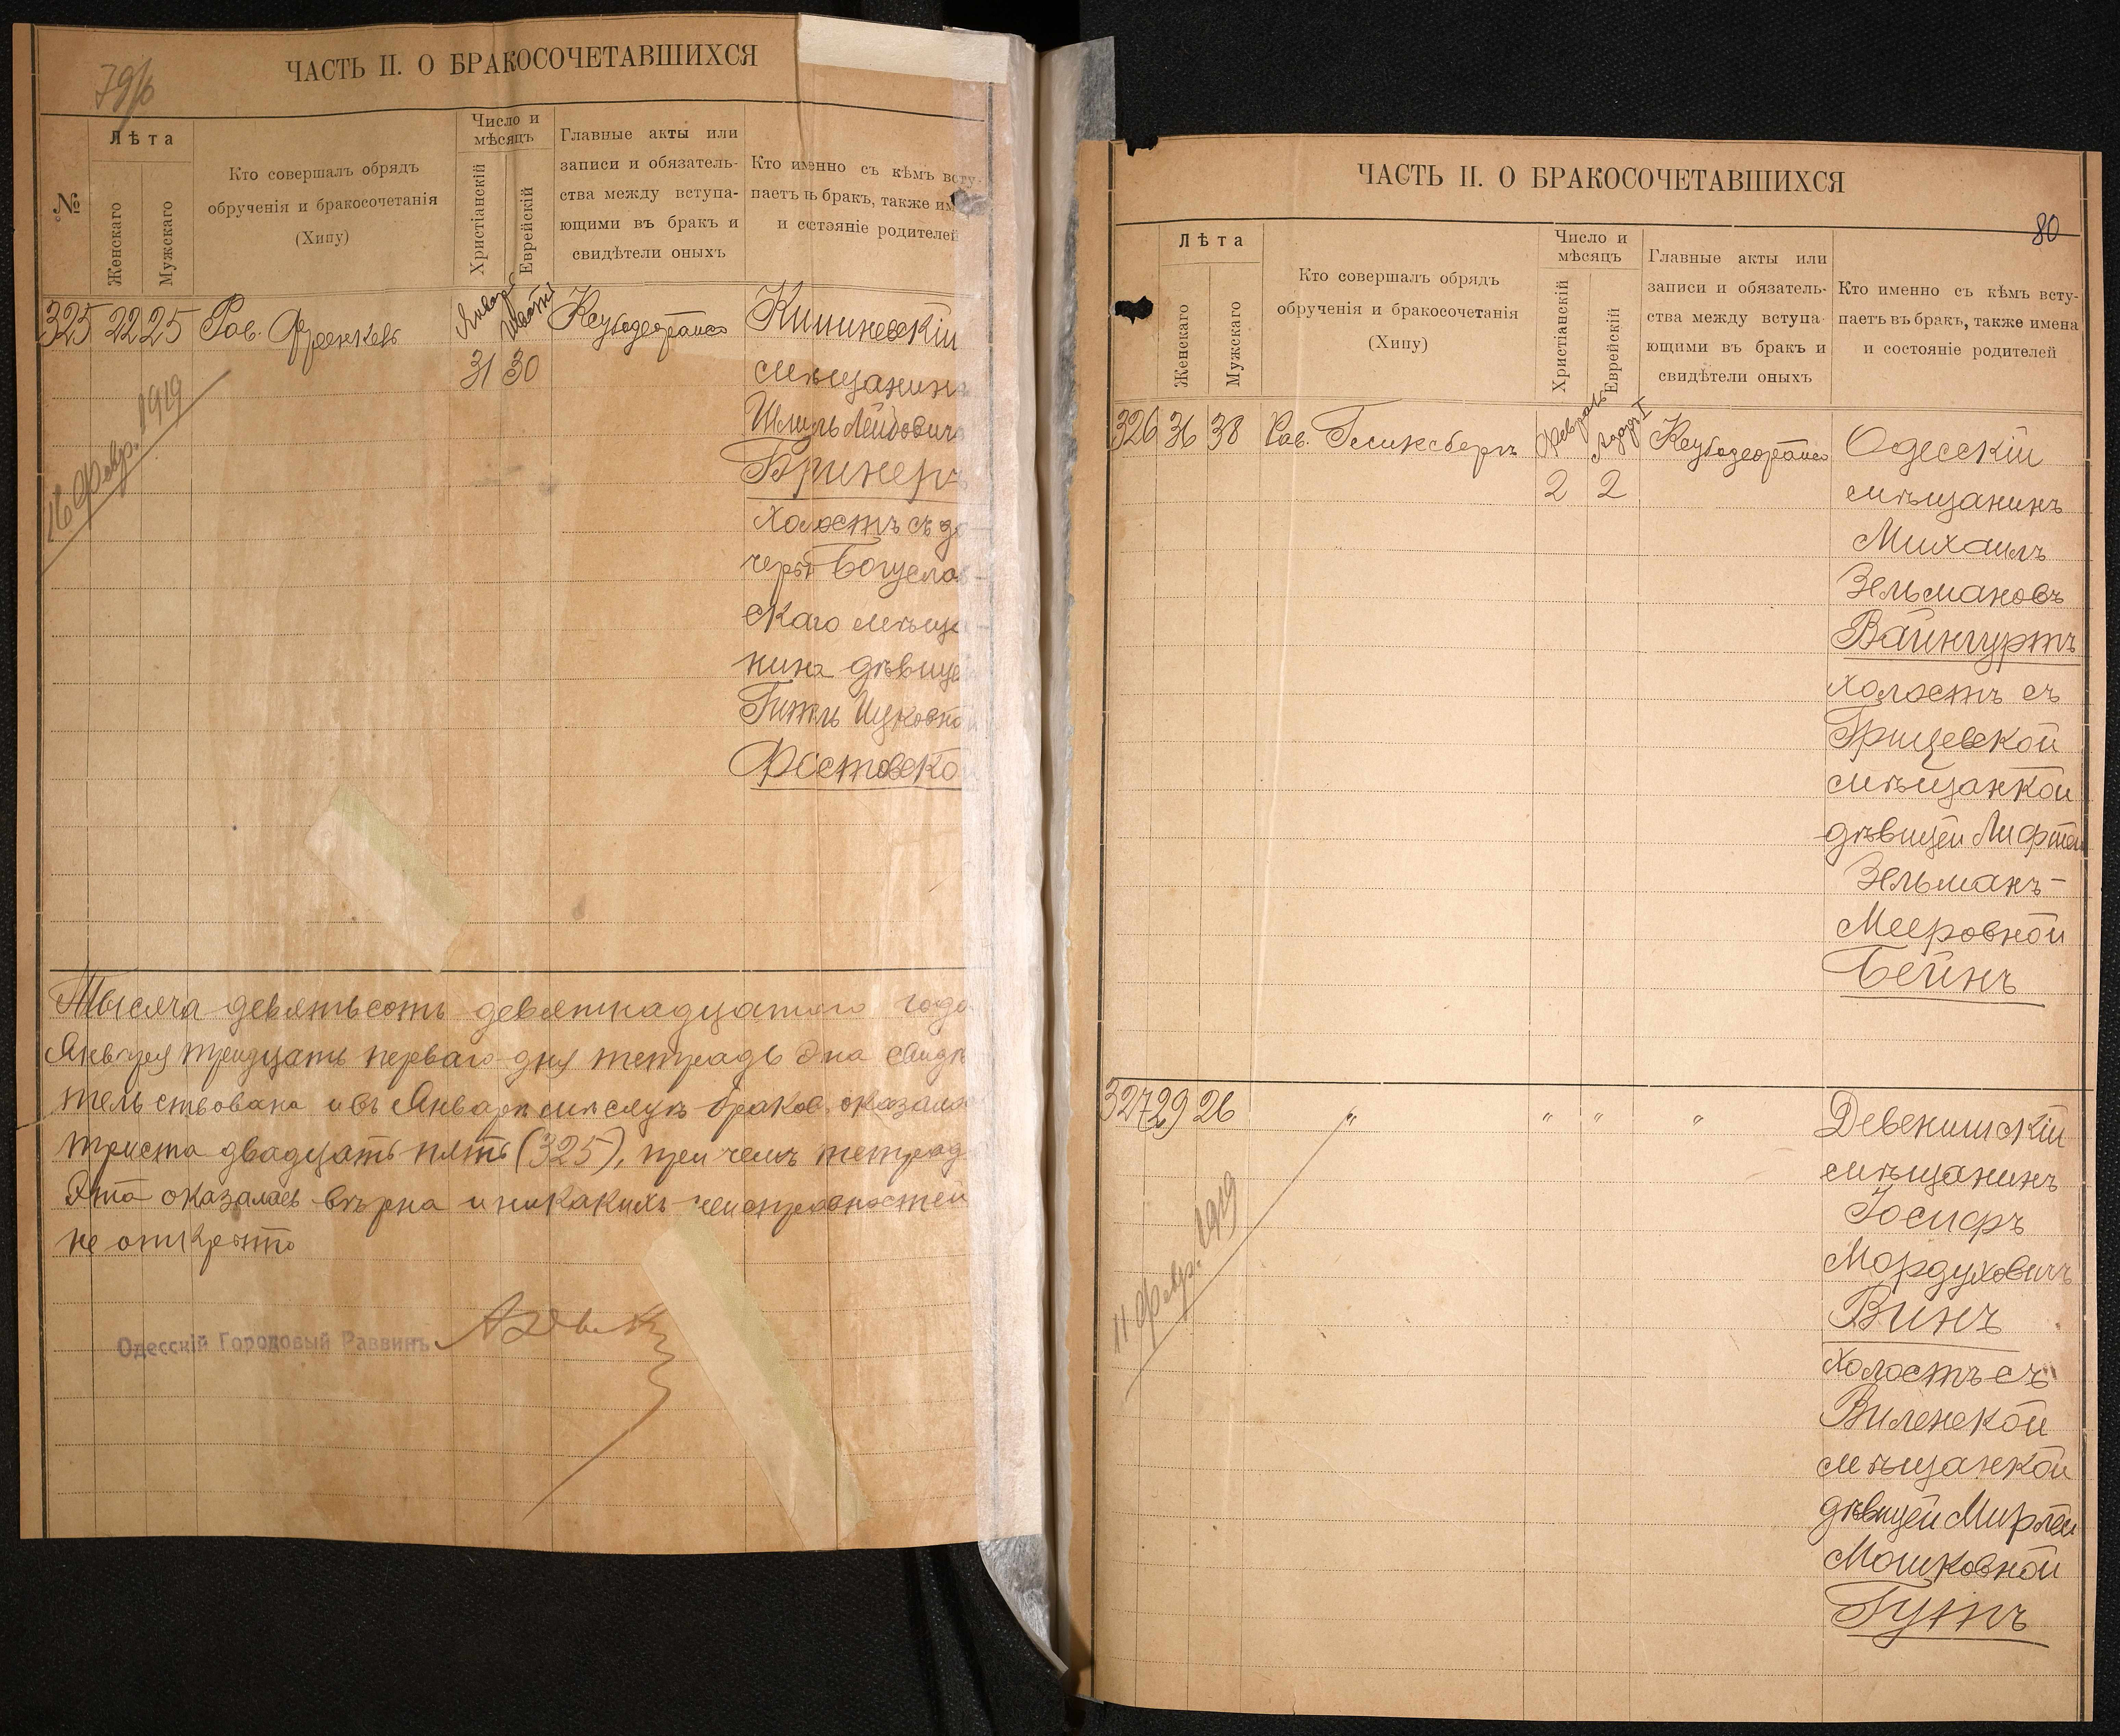 79/б
ЧАСТЬ II. О БРАКОСОЧЕТАВШИХСЯ
№
Лѣта
Женскаго
Мужскаго
Кто совершалъ обрядъ
обрученія и бракосочетанія
(Хипу)
Число и
мѣсяцъ
Христіанскій
Еврейскій
Главные акты или
записи и обязатель-
ства между вступа-
ющими въ бракъ и
свидѣтели оныхъ
Кто именно съ кѣмъ всту-
паетъ въ бракъ, также им
и состояніе родителей
325 22 25 Рав. Френкель Январь Шватъ Кишиневскій
31 30 мѣщанинъ
Шмиль Лейбовичъ
Бринеръ
холостъ съ до-
черью Богуслав-
скаго мѣща-
нина дѣвицей
Гитль Ицковной
Фастовской
16 Февр. 1919
Тысяча девятьсотъ девятнадцатаго года
Января тридцать перваго дня тетрадь эта свидѣ
тельствована и въ Январѣ мѣсяцѣ браковъ оказалось
триста двадцать пять (325), при чемъ тетрадь
эта оказалась вѣрна и никакихъ неисправностей
не открыто
Одесскій Городовый Раввинъ
ЧАСТЬ II. О БРАКОСОЧЕТАВШИХСЯ
80
Лѣта
Женскаго
Мужскаго
Кто совершалъ обрядъ
обрученія и бракосочетанія
(Хипу)
Число и
мѣсяцъ
Христіанскій
Еврейскій
Главные акты или
записи и обязатель-
ства между вступа-
ющими въ бракъ и
свидѣтели оныхъ
Кто именно съ кѣмъ всту-
паетъ въ бракъ, также имена
и состояніе родителей
326 36 38 Рав. Гликсбергъ Февраль Адаръ I Одесскій
2 2 мѣщанинъ
Михаилъ
Зельмановъ
Вайнгуртъ
холостъ съ
Грицевской
мѣщанкой
дѣвицей Лифшей
Зельманъ-
Мееровной
Бейнъ
327 29 26 " " " " Девенишскій
мѣщанинъ
Іосифъ
Мордуховичъ
Винъ
холостъ съ
Виленской
мѣщанкой
дѣвицей Мирлей
Мошковной
Гутъ
11 Февр. 1919